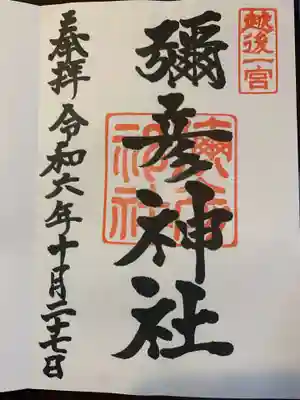 越後一宮
彌彦神社
奉拝 令和六年十月二十七日